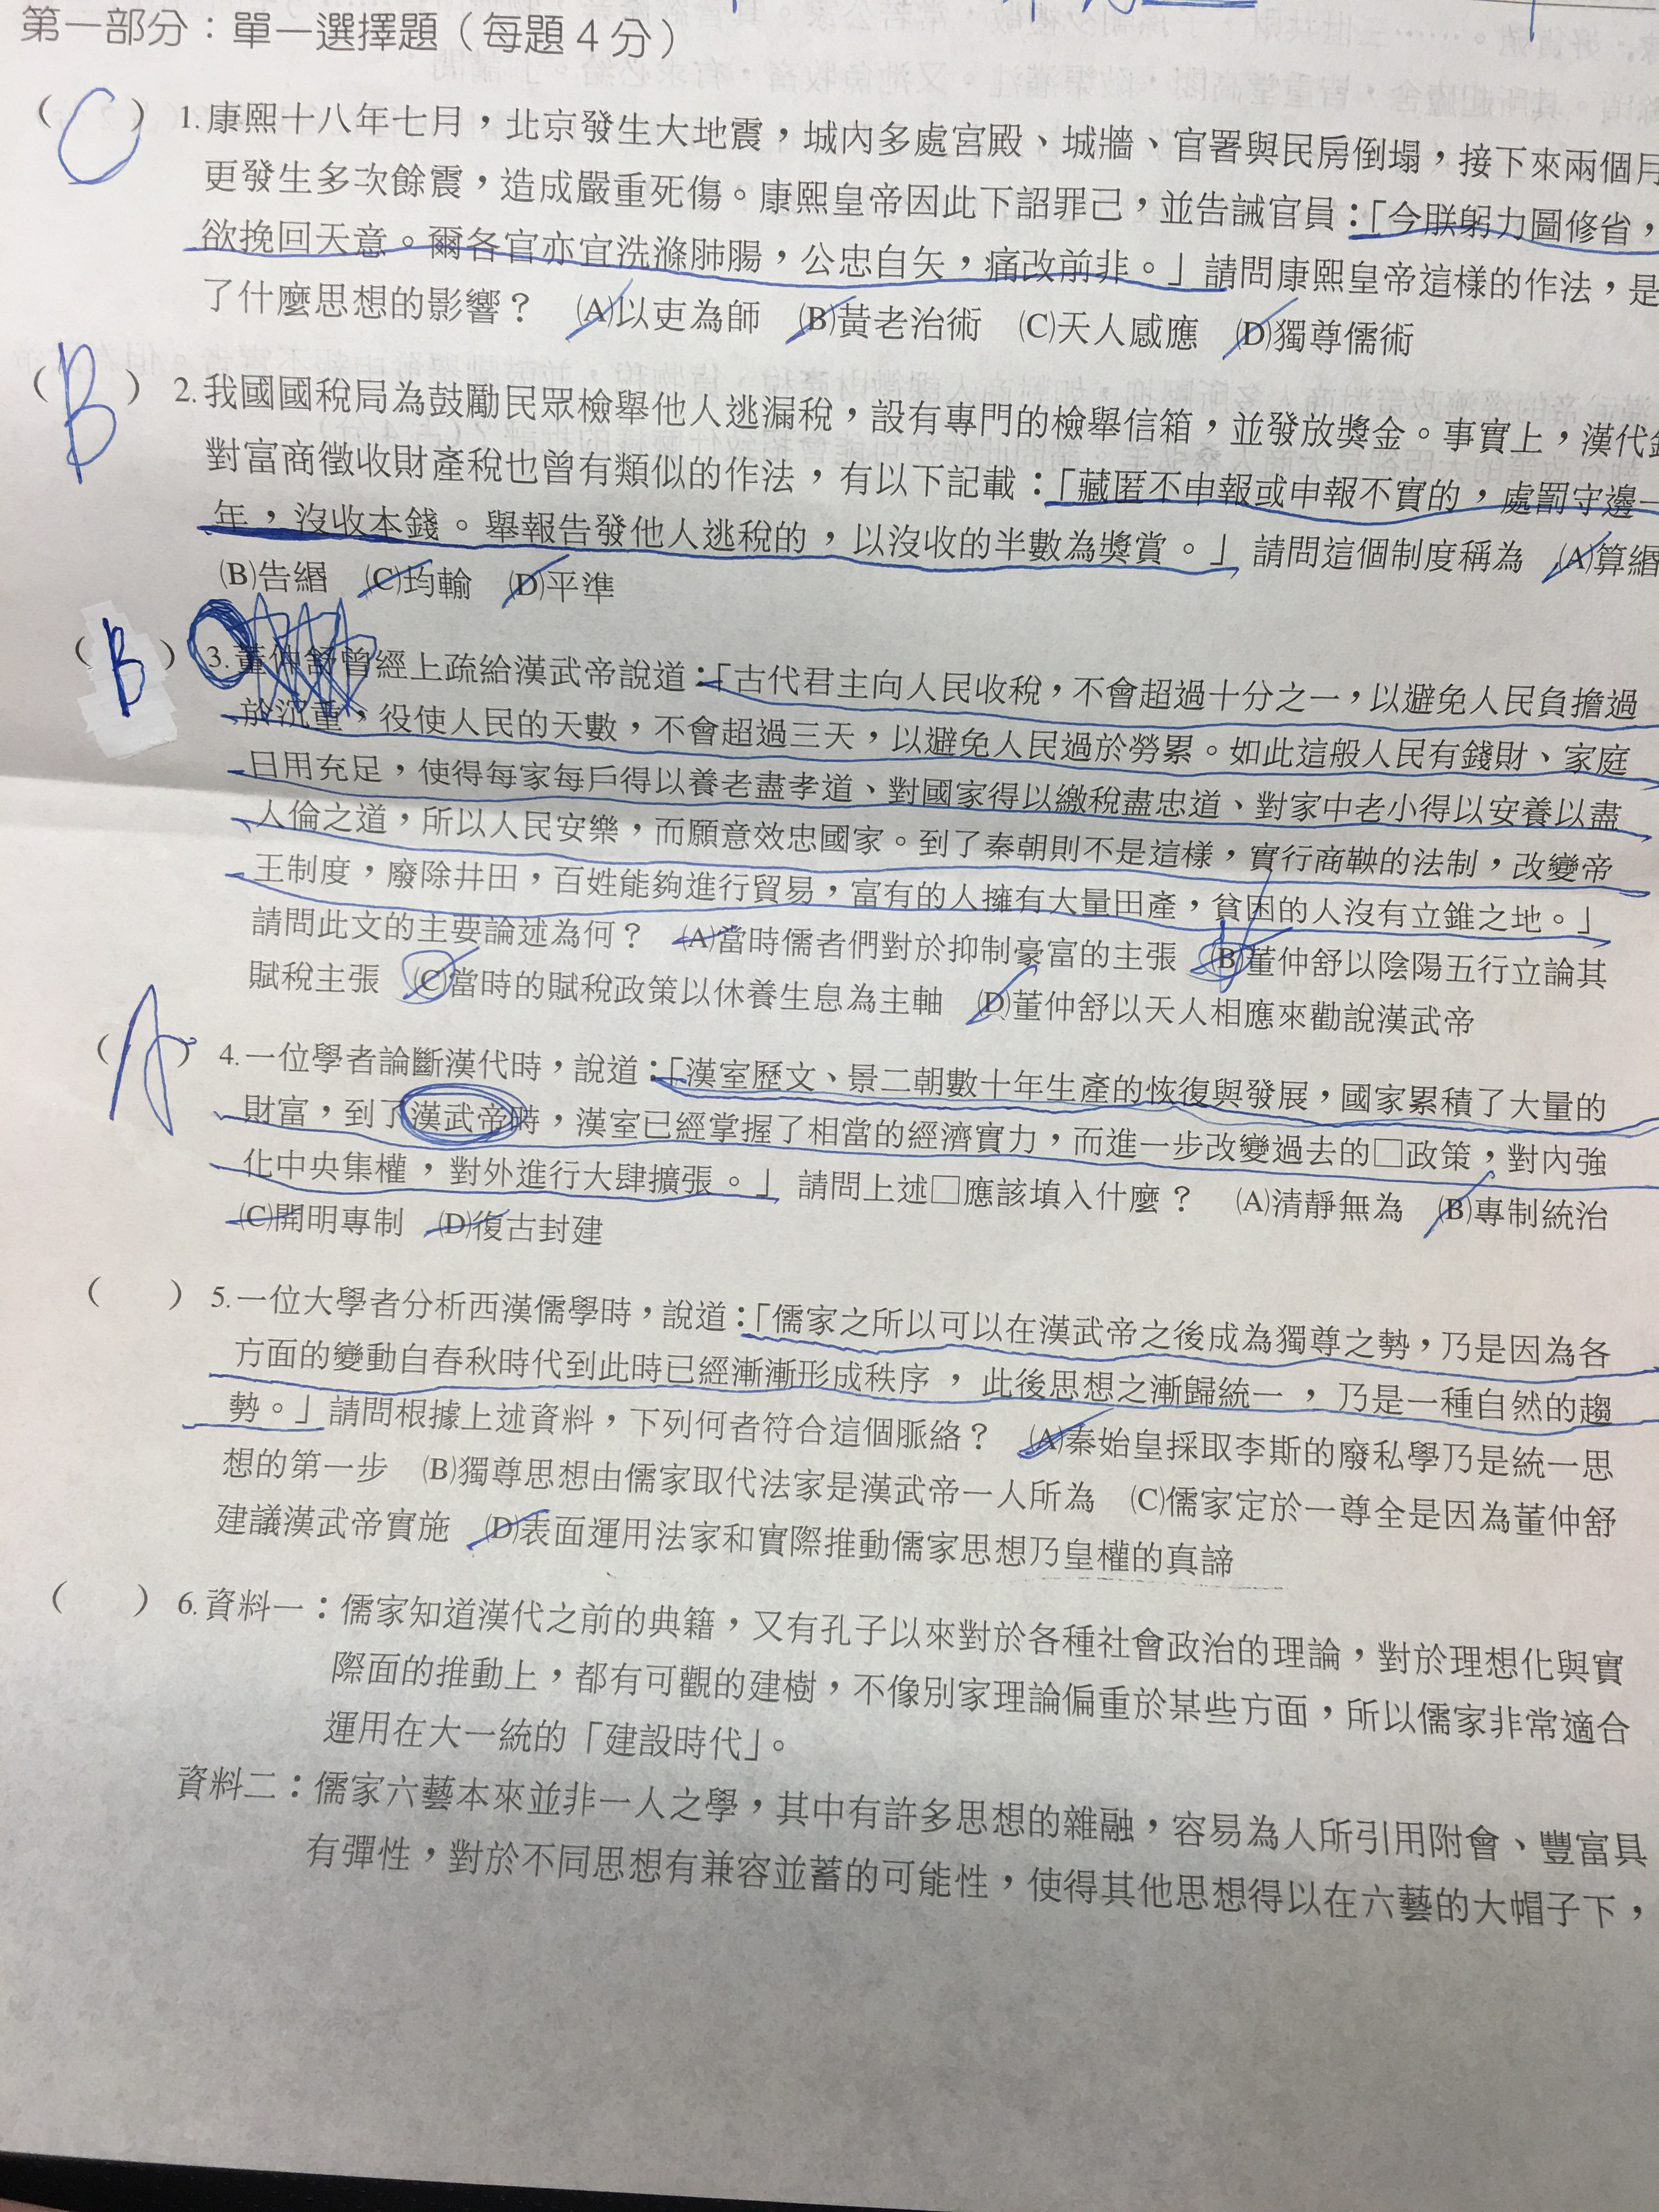 第一部分：單一選擇題（每題4分）
（C）1.康熙十八年七月，北京發生大地震，城內多處宮殿、城牆、官署與民房倒塌，接下來兩個月
更發生多次餘震，造成嚴重死傷。康熙皇帝因此下詔罪己，並告誡官員：「今朕躬力圖修省，
欲挽回天意。爾各官亦宜洗滌肺腸，公忠自矢，痛改前非。」請問康熙皇帝這樣的作法，是
了什麼思想的影響？ (A)以吏為師 (B)黃老治術 (C)天人感應 (D)獨尊儒術
（B）2.我國國稅局為鼓勵民眾檢舉他人逃漏稅，設有專門的檢舉信箱，並發放獎金。事實上，漢代
對富商徵收財產稅也曾有類似的作法，有以下記載：「藏匿不申報或申報不實的，處罰守邊一
年，沒收本錢。舉報告發他人逃稅的，以沒收的半數為獎賞。」請問這個制度稱為 (A)算緡
(B)告緡 (C)均輸 (D)平準
（B）3.董仲舒曾經上疏給漢武帝說道：「古代君主向人民收稅，不會超過十分之一，以避免人民負擔過
於沉重，役使人民的天數，不會超過三天，以避免人民過於勞累。如此這般人民有錢財、家庭
日用充足，使得每家每戶得以養老盡孝道、對國家得以繳稅盡忠道、對家中老小得以安養以盡
人倫之道，所以人民安樂，而願意效忠國家。到了秦朝則不是這樣，實行商鞅的法制，改變帝
王制度，廢除井田，百姓能夠進行貿易，富有的人擁有大量田產，貧困的人沒有立錐之地。」
請問此文的主要論述為何？ (A)當時儒者們對於抑制豪富的主張 (B)董仲舒以陰陽五行立論其
賦稅主張 (C)當時的賦稅政策以休養生息為主軸 (D)董仲舒以天人相應來勸說漢武帝
（A）4.一位學者論斷漢代時，說道：「漢室歷文、景二朝數十年生產的恢復與發展，國家累積了大量的
財富，到了漢武帝時，漢室已經掌握了相當的經濟實力，而進一步改變過去的□政策，對內強
化中央集權，對外進行大肆擴張。」請問上述□應該填入什麼？ (A)清靜無為 (B)專制統治
(C)開明專制 (D)復古封建
（ ）5.一位大學者分析西漢儒學時，說道：「儒家之所以可以在漢武帝之後成為獨尊之勢，乃是因為各
方面的變動自春秋時代到此時已經漸漸形成秩序，此後思想之漸歸統一，乃是一種自然的趨
勢。」請問根據上述資料，下列何者符合這個脈絡？ (A)秦始皇採取李斯的廢私學乃是統一思
想的第一步 (B)獨尊思想由儒家取代法家是漢武帝一人所為 (C)儒家定於一尊全是因為董仲舒
建議漢武帝實施 (D)表面運用法家和實際推動儒家思想乃皇權的真諦
（ ）6.資料一：儒家知道漢代之前的典籍，又有孔子以來對於各種社會政治的理論，對於理想化與實
際面的推動上，都有可觀的建樹，不像別家理論偏重於某些方面，所以儒家非常適合
運用在大一統的「建設時代」。
資料二：儒家六藝本來並非一人之學，其中有許多思想的雜融，容易為人所引用附會、豐富具
有彈性，對於不同思想有兼容並蓄的可能性，使得其他思想得以在六藝的大帽子下，